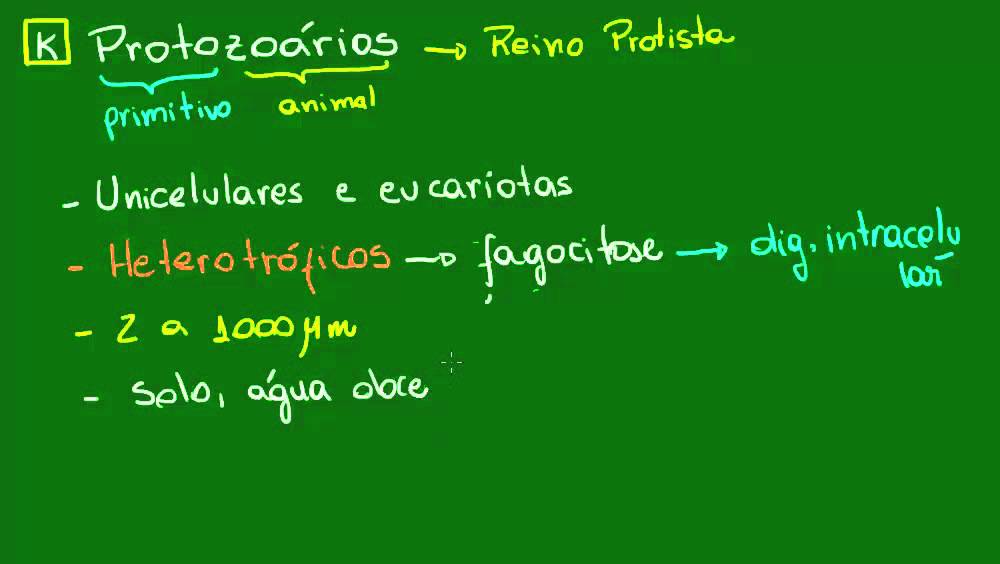 K Protozoários → Reino Protista
primitivo animal
- Unicelulares e eucariotas
- Heterotróficos → fagocitose → dig. intracelu
lar
- 2 a 1000 μm
- Solo, água doce